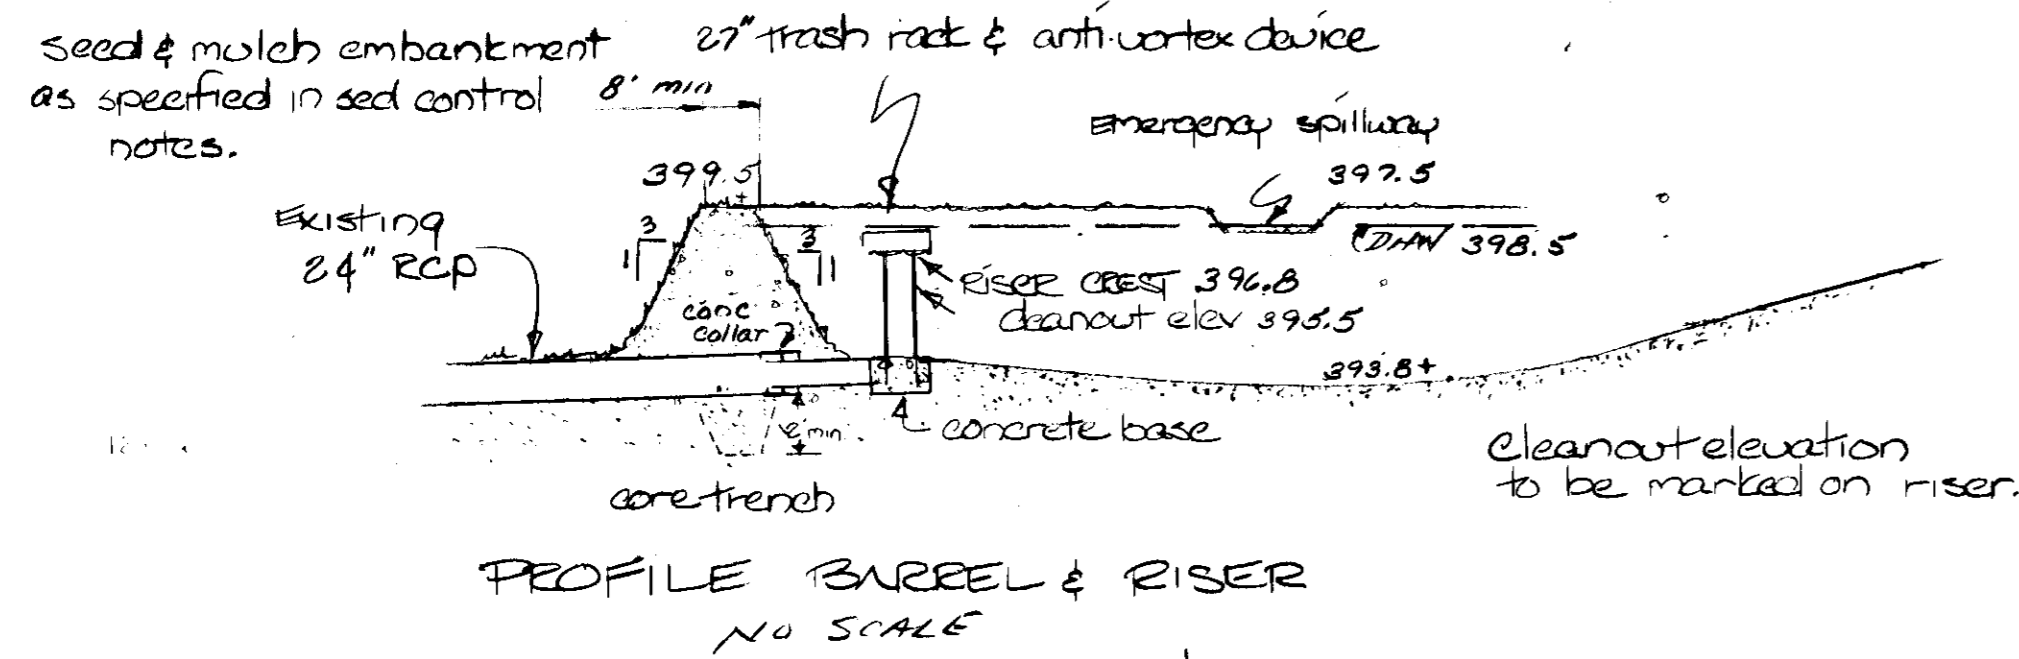 seed & mulch embankment
as specified in sed control
notes.
27" trash rack & anti-vortex device
8' min
Emergency spillway
399.5
397.5
Existing
24" RCP
3
1
3
1
DHW 398.5
RISER CREST 396.8
cleanout elev 395.5
conc
collar
393.8+
min.
concrete base
core trench
Cleanout elevation
to be marked on riser.
PROFILE BARREL & RISER
NO SCALE